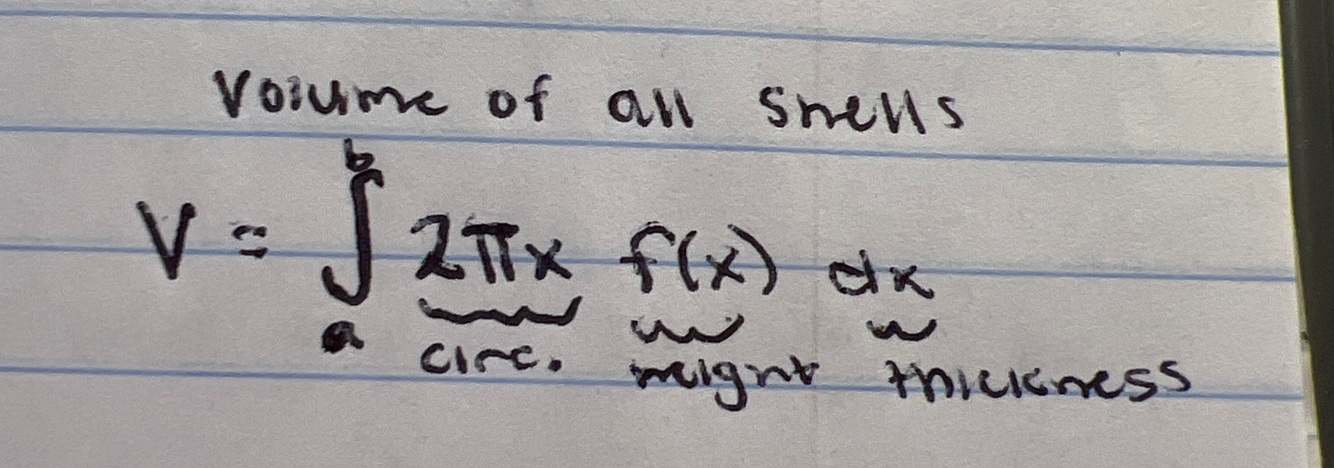 Volume of all shells
V = ∫_a^b 2πx f(x) dx
circ. height thickness